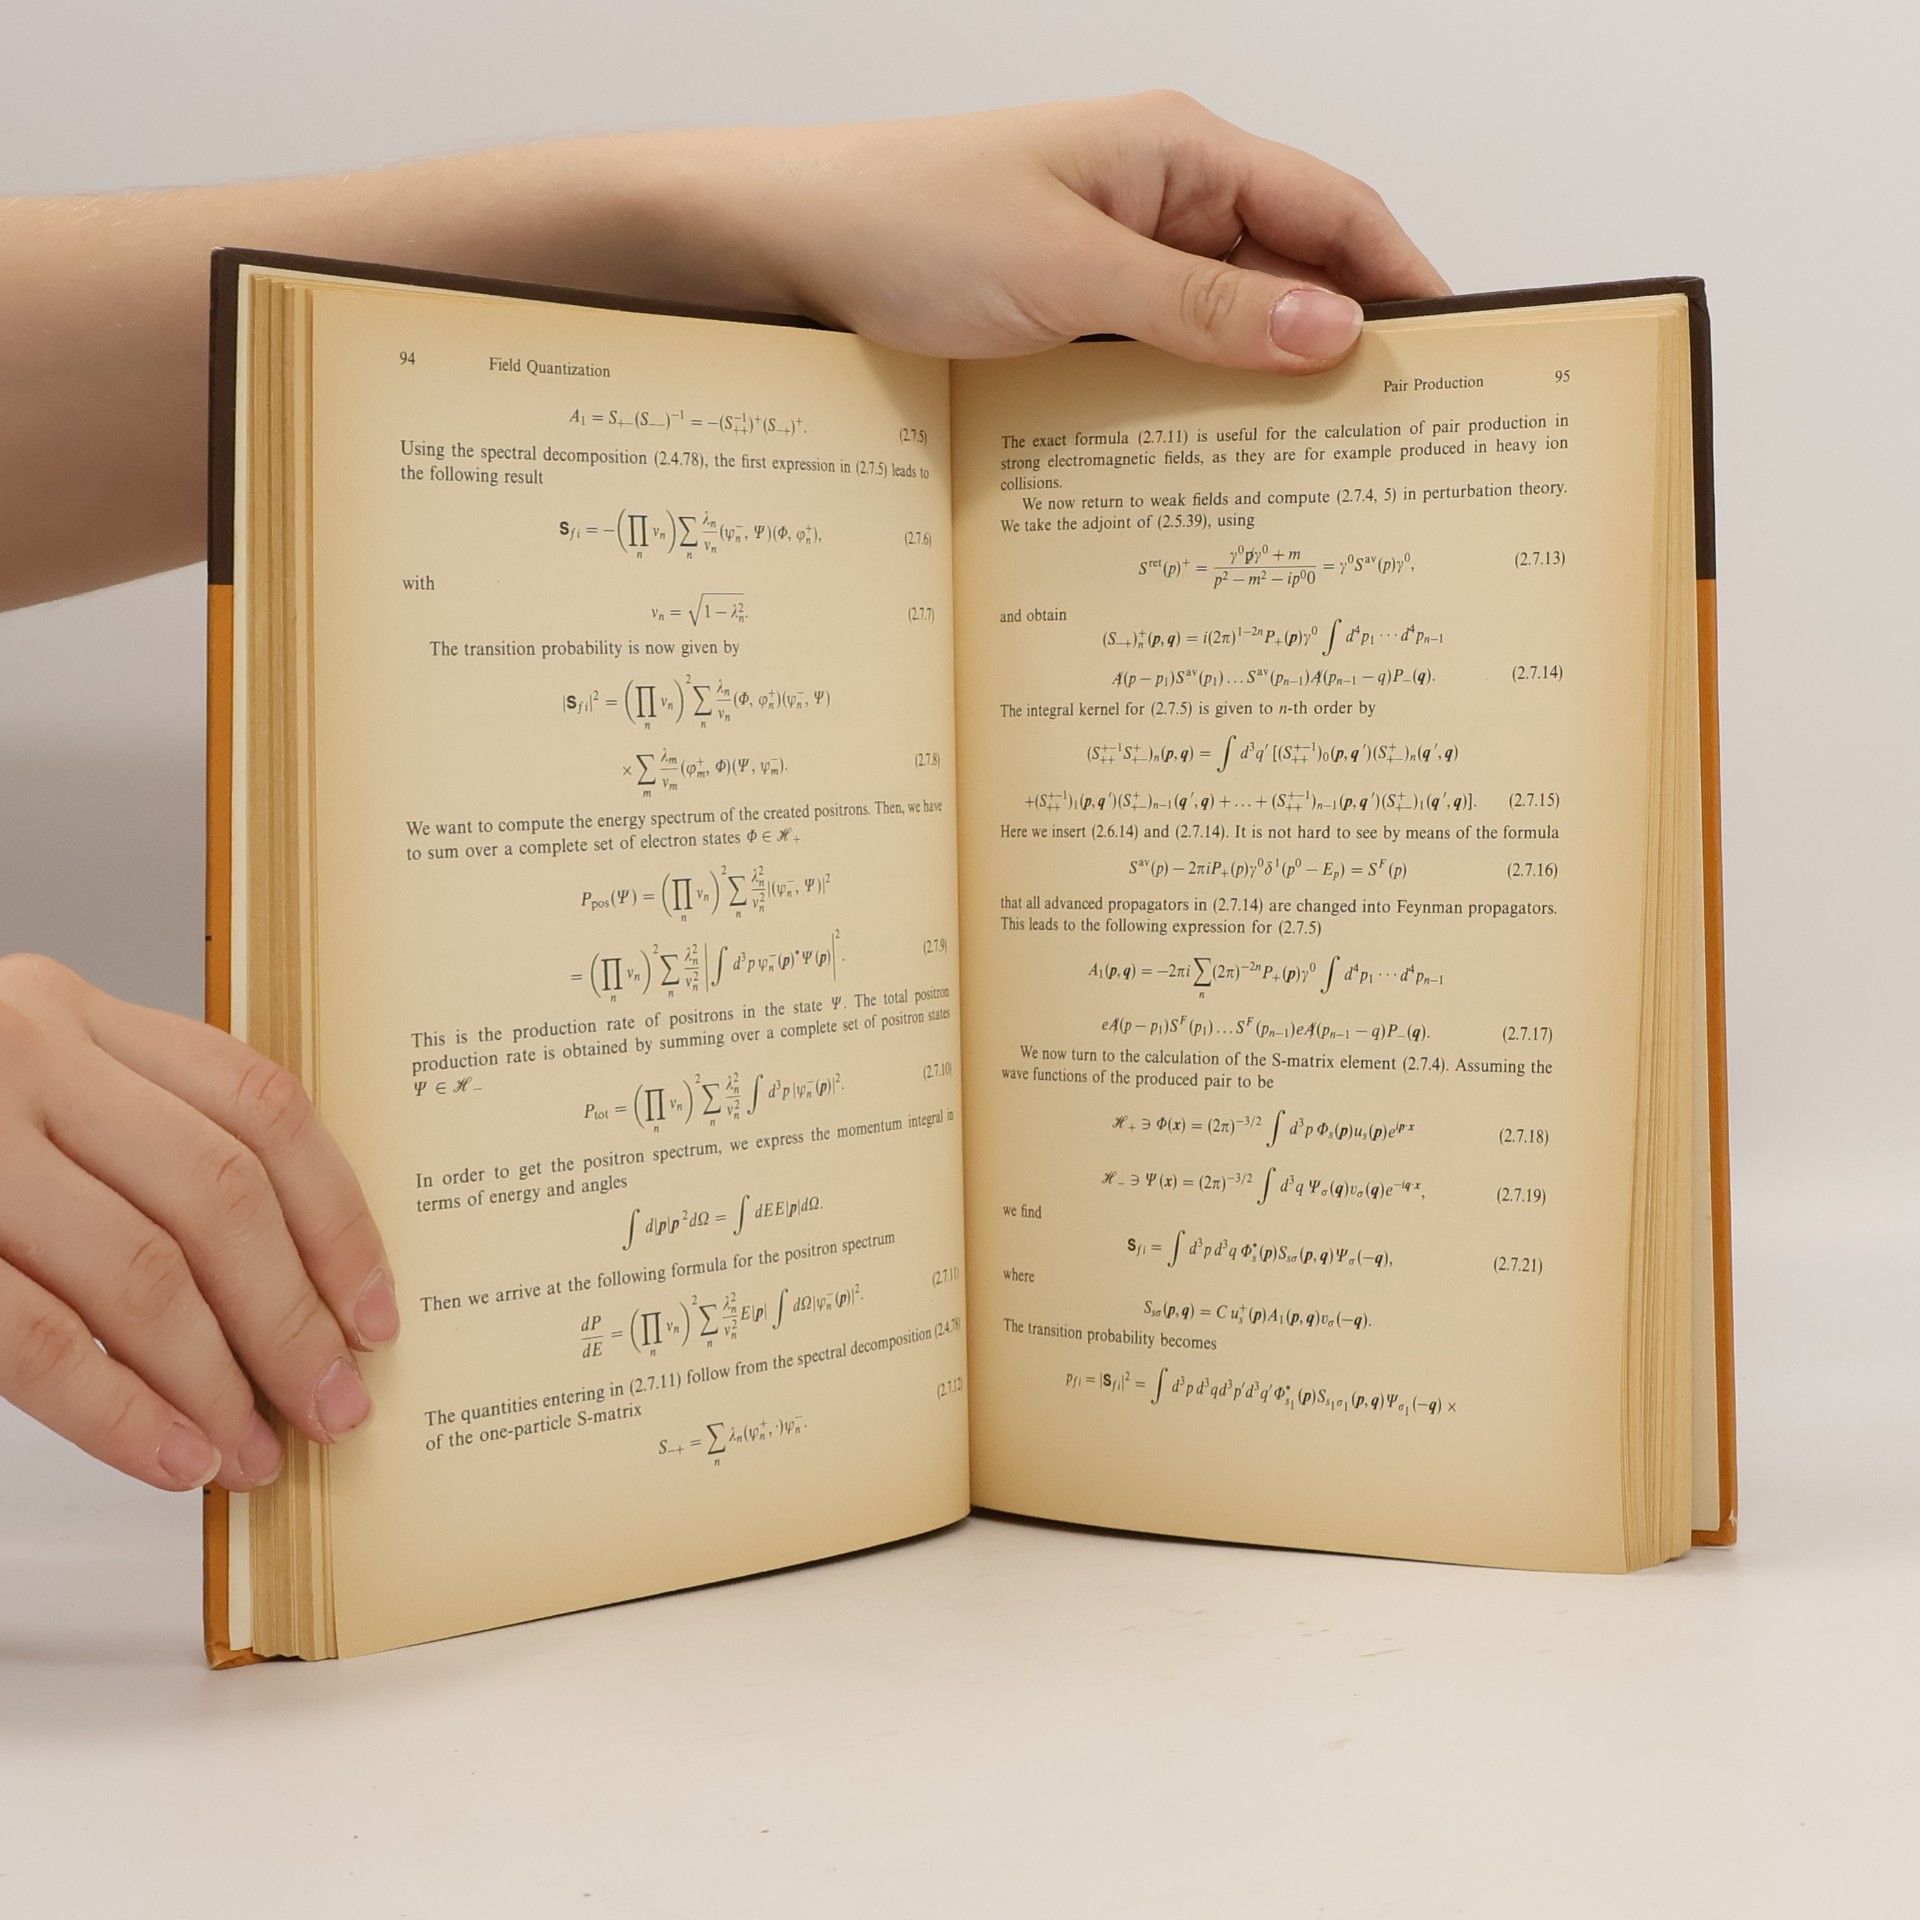 94 Field Quantization
A₁ = S₊₋(S₋₋)⁻¹ = −(S₊₊⁻¹)⁺(S₋₊)⁺. (2.7.5)
Using the spectral decomposition (2.4.78), the first expression in (2.7.5) leads to
the following result
S_{fi} = −(∏_n ν_n) ∑_n λ_n/ν_n (ψ_n⁻, Ψ)(Φ, φ_n⁺), (2.7.6)
with
ν_n = √(1 − λ_n²). (2.7.7)
The transition probability is now given by
|S_{fi}|² = (∏_n ν_n)² ∑_n λ_n/ν_n (Φ, φ_n⁺)(ψ_n⁻, Ψ)
× ∑_m λ_m/ν_m (φ_m⁺, Φ)(Ψ, ψ_m⁻). (2.7.8)
We want to compute the energy spectrum of the created positrons. Then, we have
to sum over a complete set of electron states Φ ∈ ℋ₊
P_pos(Ψ) = (∏_n ν_n)² ∑_n λ_n²/ν_n² |(ψ_n⁻, Ψ)|²
= (∏_n ν_n)² ∑_n λ_n²/ν_n² |∫ d³p ψ_n⁻(p)* Ψ(p)|². (2.7.9)
This is the production rate of positrons in the state Ψ. The total positron
production rate is obtained by summing over a complete set of positron states
Ψ ∈ ℋ₋
P_tot = (∏_n ν_n)² ∑_n λ_n²/ν_n² ∫ d³p |ψ_n⁻(p)|². (2.7.10)
In order to get the positron spectrum, we express the momentum integral in
terms of energy and angles
∫ d|p|p²dΩ = ∫ dEE|p|dΩ.
Then we arrive at the following formula for the positron spectrum
dP/dE = (∏_n ν_n)² ∑_n λ_n²/ν_n² E|p| ∫ dΩ|ψ_n⁻(p)|². (2.7.11)
The quantities entering in (2.7.11) follow from the spectral decomposition (2.4.78)
of the one-particle S-matrix
S₋₊ = ∑_n λ_n(φ_n⁺, ·)ψ_n⁻. (2.7.12)
Pair Production 95
The exact formula (2.7.11) is useful for the calculation of pair production in
strong electromagnetic fields, as they are for example produced in heavy ion
collisions.
We now return to weak fields and compute (2.7.4, 5) in perturbation theory.
We take the adjoint of (2.5.39), using
S^ret(p)⁺ = (γ⁰p̸γ⁰ + m)/(p² − m² − ip⁰0) = γ⁰S^av(p)γ⁰, (2.7.13)
and obtain
(S₋₊)_n⁺(p, q) = i(2π)^{1−2n} P₊(p)γ⁰ ∫ d⁴p₁ ··· d⁴p_{n−1}
A̸(p − p₁)S^av(p₁)...S^av(p_{n−1})A̸(p_{n−1} − q)P₋(q). (2.7.14)
The integral kernel for (2.7.5) is given to n-th order by
(S₊₊^{+−1}S₊₋⁺)_n(p, q) = ∫ d³q′ [(S₊₊^{+−1})₀(p, q′)(S₊₋⁺)_n(q′, q)
+(S₊₊^{+−1})₁(p, q′)(S₊₋⁺)_{n−1}(q′, q) + ... + (S₊₊^{+−1})_{n−1}(p, q′)(S₊₋⁺)₁(q′, q)]. (2.7.15)
Here we insert (2.6.14) and (2.7.14). It is not hard to see by means of the formula
S^av(p) − 2πiP₊(p)γ⁰δ¹(p⁰ − E_p) = S^F(p) (2.7.16)
that all advanced propagators in (2.7.14) are changed into Feynman propagators.
This leads to the following expression for (2.7.5)
A₁(p, q) = −2πi ∑_n (2π)^{−2n} P₊(p)γ⁰ ∫ d⁴p₁ ··· d⁴p_{n−1}
eA̸(p − p₁)S^F(p₁)...S^F(p_{n−1})eA̸(p_{n−1} − q)P₋(q). (2.7.17)
We now turn to the calculation of the S-matrix element (2.7.4). Assuming the
wave functions of the produced pair to be
ℋ₊ ∋ Φ(x) = (2π)^{−3/2} ∫ d³p Φ_s(p)u_s(p)e^{ip·x} (2.7.18)
ℋ₋ ∋ Ψ(x) = (2π)^{−3/2} ∫ d³q Ψ_σ(q)v_σ(q)e^{−iq·x}, (2.7.19)
we find
S_{fi} = ∫ d³p d³q Φ_s*(p)S_{sσ}(p, q)Ψ_σ(−q), (2.7.21)
where
S_{sσ}(p, q) = C u_s⁺(p)A₁(p, q)v_σ(−q).
The transition probability becomes
p_{fi} = |S_{fi}|² = ∫ d³p d³qd³p′d³q′ Φ*_{s₁}(p)S_{s₁σ₁}(p, q)Ψ_{σ₁}(−q) ×